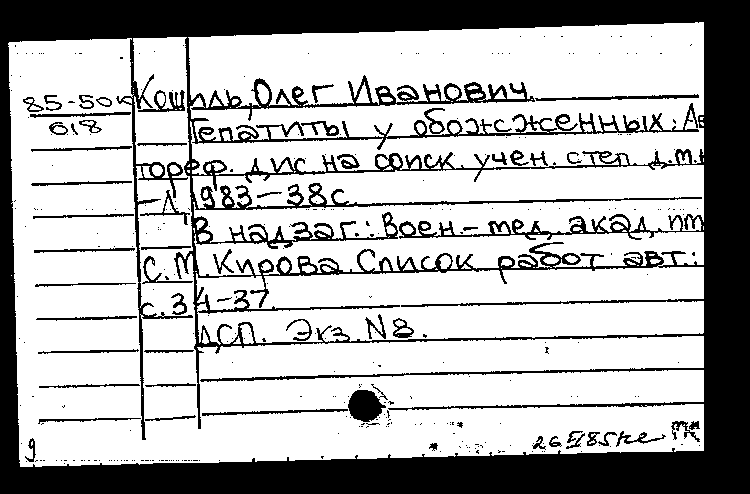 85-50к Кошиль, Олег Иванович.
618 Гепатиты у обожженных: Ав
тореф. дис. на соиск. учен. степ. д.м.н
-Л, 1983-38с.
В надзаг.: Воен-мед. акад. им
С.М. Кирова. Список работ авт.:
с.34-37.
ДСП. Экз. N8.
9